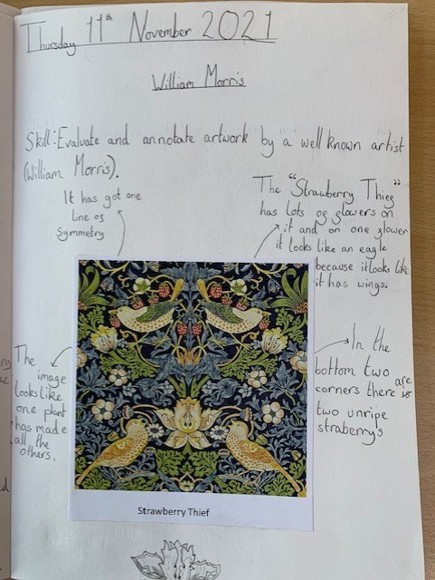 Thursday 11th November 2021
William Morris
Skill: Evaluate and annotate artwork by a well known artist
(William Morris).
It has got one
line of
symmetry
The "Strawberry Thief"
has lots of flowers on
it and on one flower
it looks like an eagle
because it looks like
it has wings.
The
image
looks like
one plant
has made
all the
others.
In the
bottom two
corners there are
two unripe
straberry's
Strawberry Thief